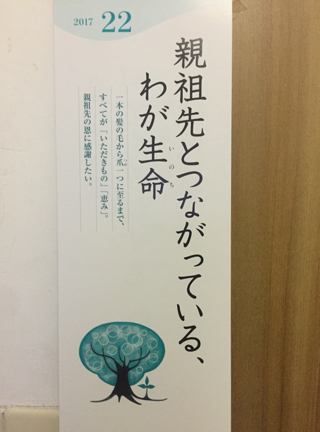 2017 22
親祖先とつながっている、
わが生命
いのち
一本の髪の毛から爪一つに至るまで、
すべてが「いただきもの」「恵み」。
親祖先の恩に感謝したい。